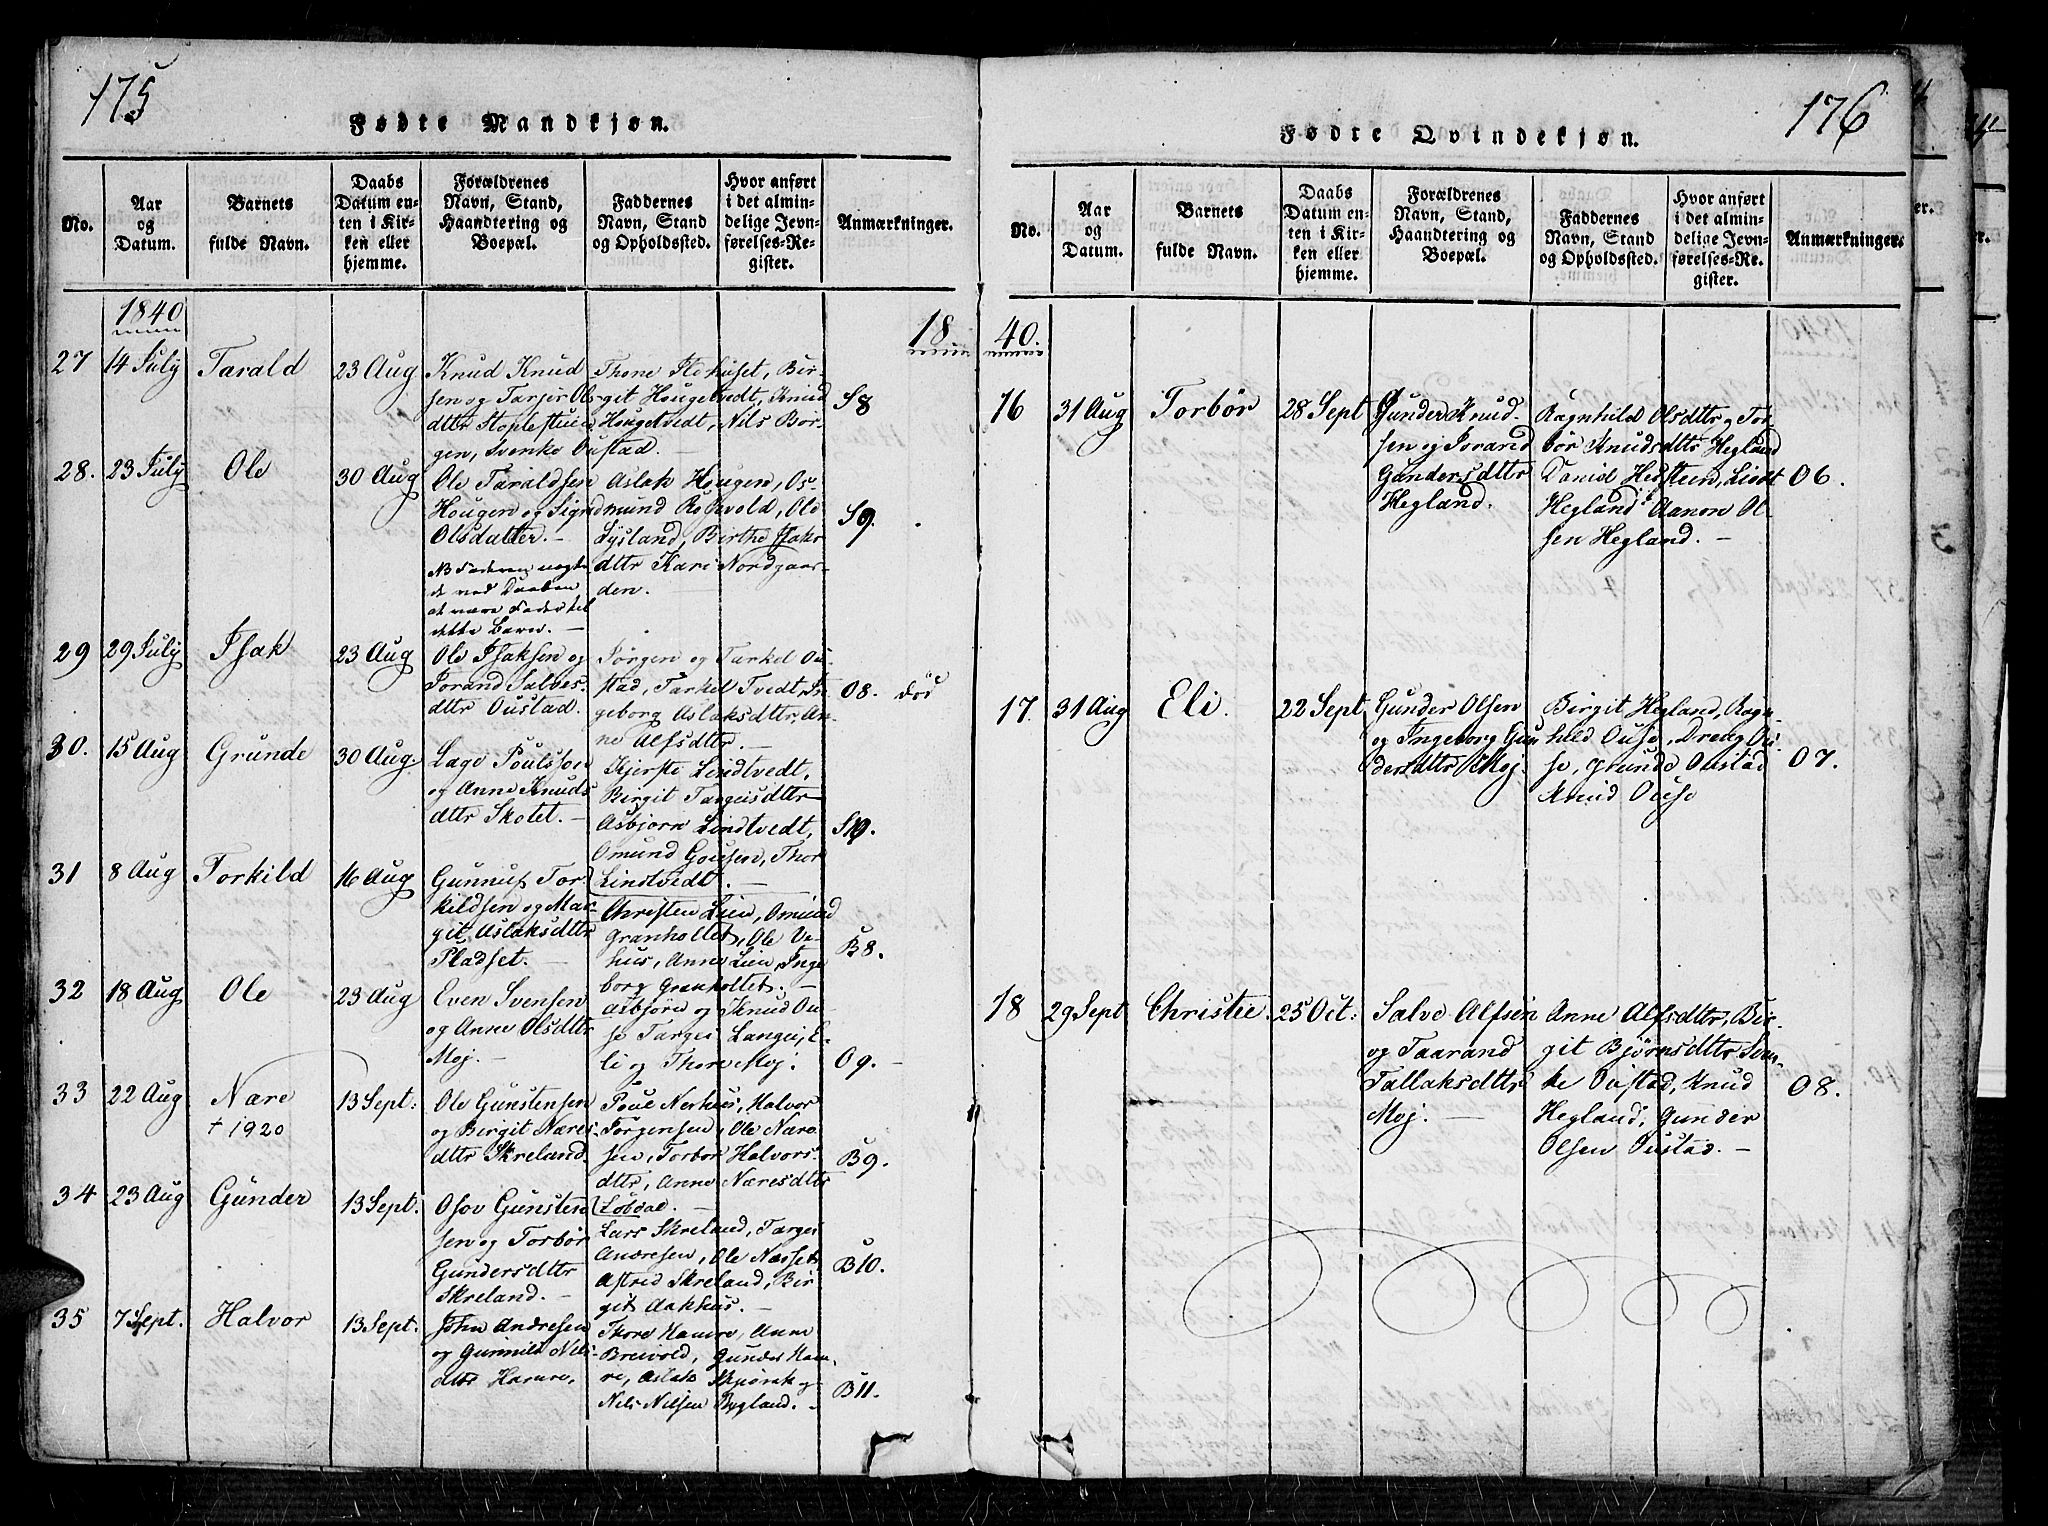 175
Fødte Mandkjøn.
No.
Aar
og
Datum.
Barnets
fulde Navn.
Daabs
Datum en-
ten i Kir-
ken eller
hjemme.
Forældrenes
Navn, Stand,
Haandtering og
Boepæl.
Faddernes
Navn, Stand
og Opholdssted.
Hvor anført
i det almin-
delige Jevn-
førelses-Re-
gister.
Anmærkninger.
1840
27 14 July Tarald 23 Aug
Knud Knud
sen og Tarjer Ols
dttr
Thone Flehuset, Bir-
git Hougetvedt, Knud
Hougetvedt, Nils Bor-
gen, Svenke Oustad.
S8
28. 23 July Ole 30 Aug
Ole Taraldsen
Hougen og Signe
Olsdatter. —
NB Faderen nægte
de ved Daaben
at være Fader til
dette Barn. —
Aslak Hougen, Os-
mund Rosvold, Ole
Lysland, Birthe Isaks
dttr Kari Nordgaar-
den.
S9.
29 29 July Isak 23 Aug
Ole Isaksen og
Jorand Salves-
dttr Oustad.
Jørgen og Tarkel Ou-
stad, Tarkel Tvedt, In-
geborg Aslaksdttr, An-
ne Alfsdttr. —
O8. død
30. 15 Aug Grunde 30 Aug.
Lage Poulssen
og Anne Knuds
dttr Skotet. —
Kjerste Lindtvedt,
Birgit Targeisdttr
Asbjorn Lindtvedt,
Omund Gousen, Thor
Lindtvedt. —
S10.
31 8 Aug Torkild 16 Aug
Gunnuf Tor-
kildsen og Mar-
git Aslaksdttr
Pladset. —
Christen Lien, Omund
Granholtet, Ole Ve-
hus, Anne Lien, Inge
borg Granholtet. —
B8.
32 18 Aug Ole 23 Aug
Even Svensen
og Anne Olsdttr
Moj. —
Asbjörn og Knud Ou-
se Targei Langei, E-
li og Thore Moj.
O9. —
33 22 Aug Nære 13 Sept:
† 1920
Ole Gunstensen
og Birgit Næres-
dttr Skreland.
Poul Nerhus, Halvor
Torgensen, Ole Nære
sen, Torbor Halvors-
dttr, Anne Næresdttr
Løbdal. —
B9.
34 23 Aug Gunder 13 Sept:
Osov Gunsten
sen og Torbør
Gundersdttr
Skreland. —
Lars Skreland, Targei
Andresen, Ole Næsset
Astrid Skreland, Bir
git Aakhus. —
B10.
35 7 Sept. Halvor 13 Sept:
John Andresen
og Gunnild Nils-
dttr Hamre.
Thore Hamre, Anne
Breivold, Gunder Ham-
re, Aslak Bjørnk og
Nils Nilsen Bygland. —
B11.
176
Fødte Qvindekjøn.
No.
Aar
og
Datum.
Barnets
fulde Navn.
Daabs
Datum en-
ten i Kir-
ken eller
hjemme.
Forældrenes
Navn, Stand,
Haandtering og
Boepæl.
Faddernes
Navn, Stand
og Opholdssted.
Hvor anført
i det almin-
delige Jevn-
førelses-Re-
gister.
Anmærkninger.
18 40.
16 31 Aug Torbør 28 Sept
Gunder Knud-
sen og Jorand
Gundersdttr
Hegland.
Ragnhild Olsdttr, Tor-
bør Knudsdttr Hegland
Daniel Heisteen,
Hegland, Aanon Ol-
sen Hegland. —
O6.
17. 31 Aug Eli. 22 Sept
Gunder Olsen
og Ingeborg Gun
dersdttr Moj.
Birgit Hegland, Ragn-
hild Ouse, Dreng Ou-
se, Grunde Oustad
Knud Ouse
O7.
18 29 Sept Christie. 25 Oct:
Salve Alfsen
og Taarand
Tallaksdttr
Moj. —
Anne Alfsdttr, Bir-
git Bjørnsdttr Sven-
ke Oustad, Knud
Hegland, Gunder
Olsen Oustad. —
O8.